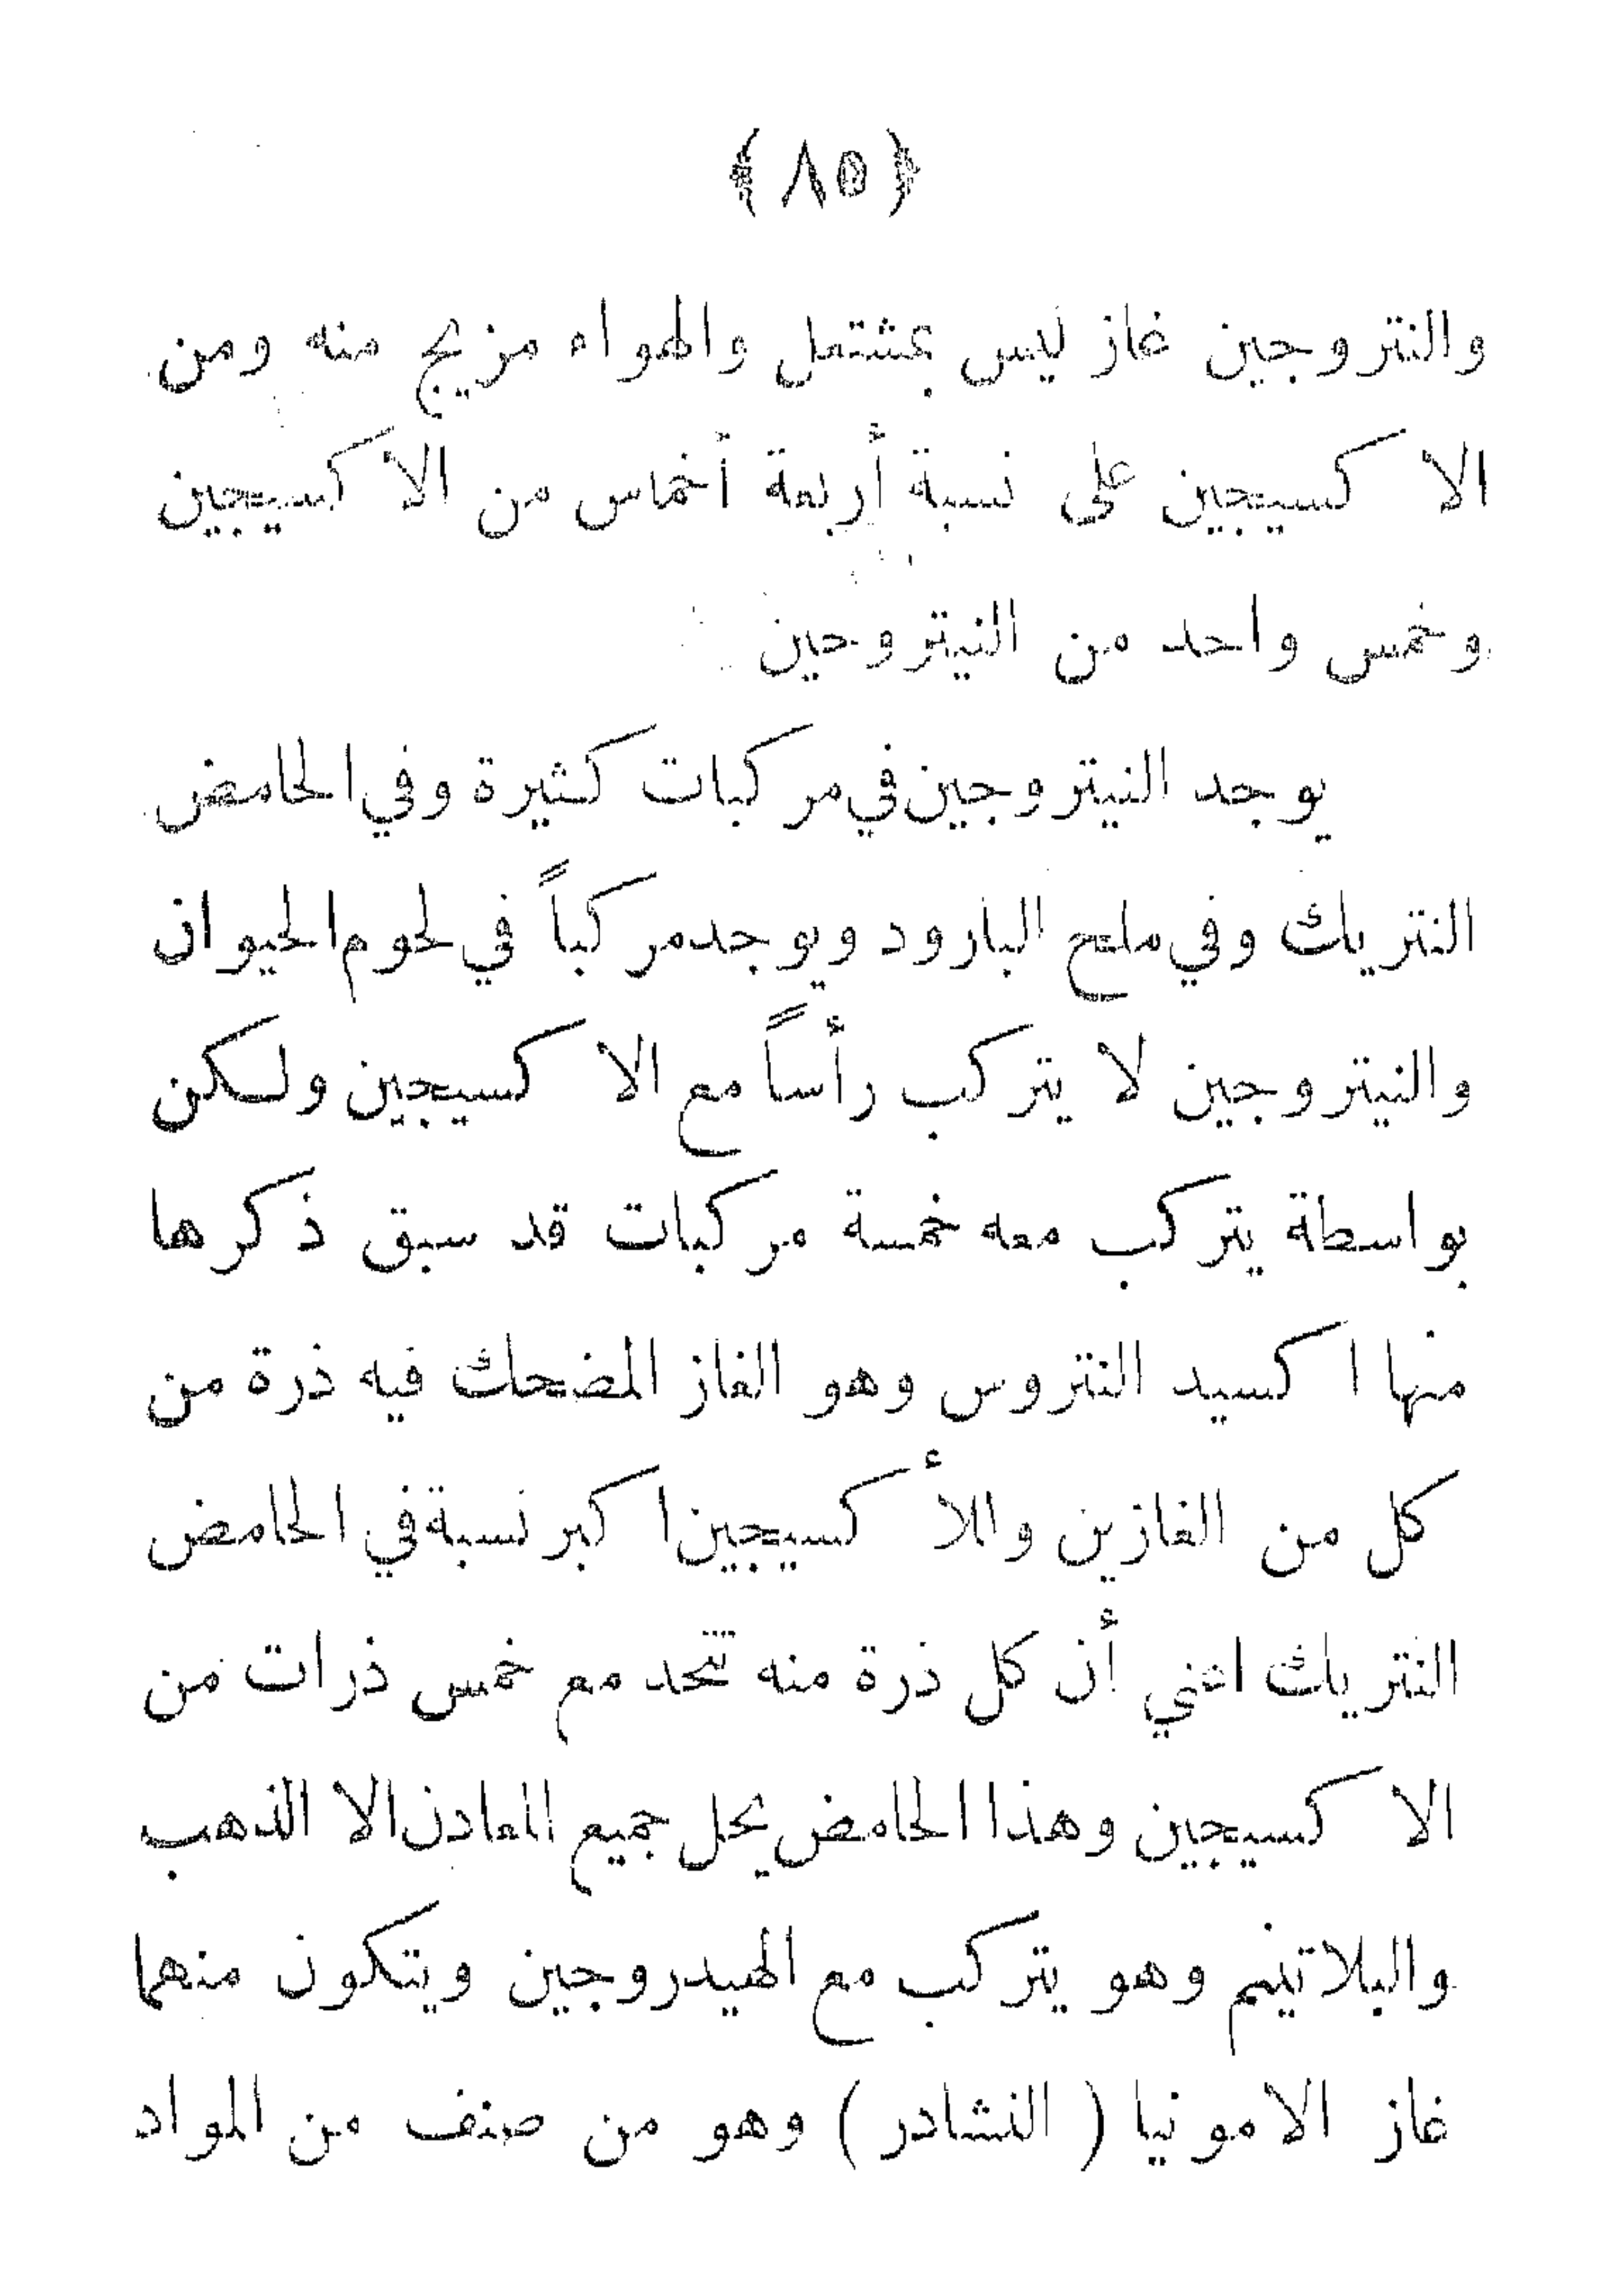 ﴿ ٨٥ ﴾
والنتروجين غاز ليس بمشتمل والهواء مزيج منه ومن
الاكسيجين على نسبة أربعة أخماس من الاكسيجين
وخمس واحد من النيتروجين
يوجد النيتروجين في مركبات كثيرة وفي الحامض
النتريك وفي ملح البارود ويوجد مركباً في لحوم الحيوان
والنيتروجين لا يتركب رأساً مع الاكسيجين ولكن
بواسطة يتركب معه خمسة مركبات قد سبق ذكرها
منها اكسيد النتروس وهو الغاز المضحك فيه ذرة من
كل من الغازين وللأكسيجين اكبر نسبة في الحامض
النتريك اعني أن كل ذرة منه تتحد مع خمس ذرات من
الاكسيجين وهذا الحامض يحل جميع المعادن الا الذهب
والبلاتينم وهو يتركب مع الهيدروجين ويتكون منهما
غاز الامونيا ( النشادر ) وهو من صنف من المواد